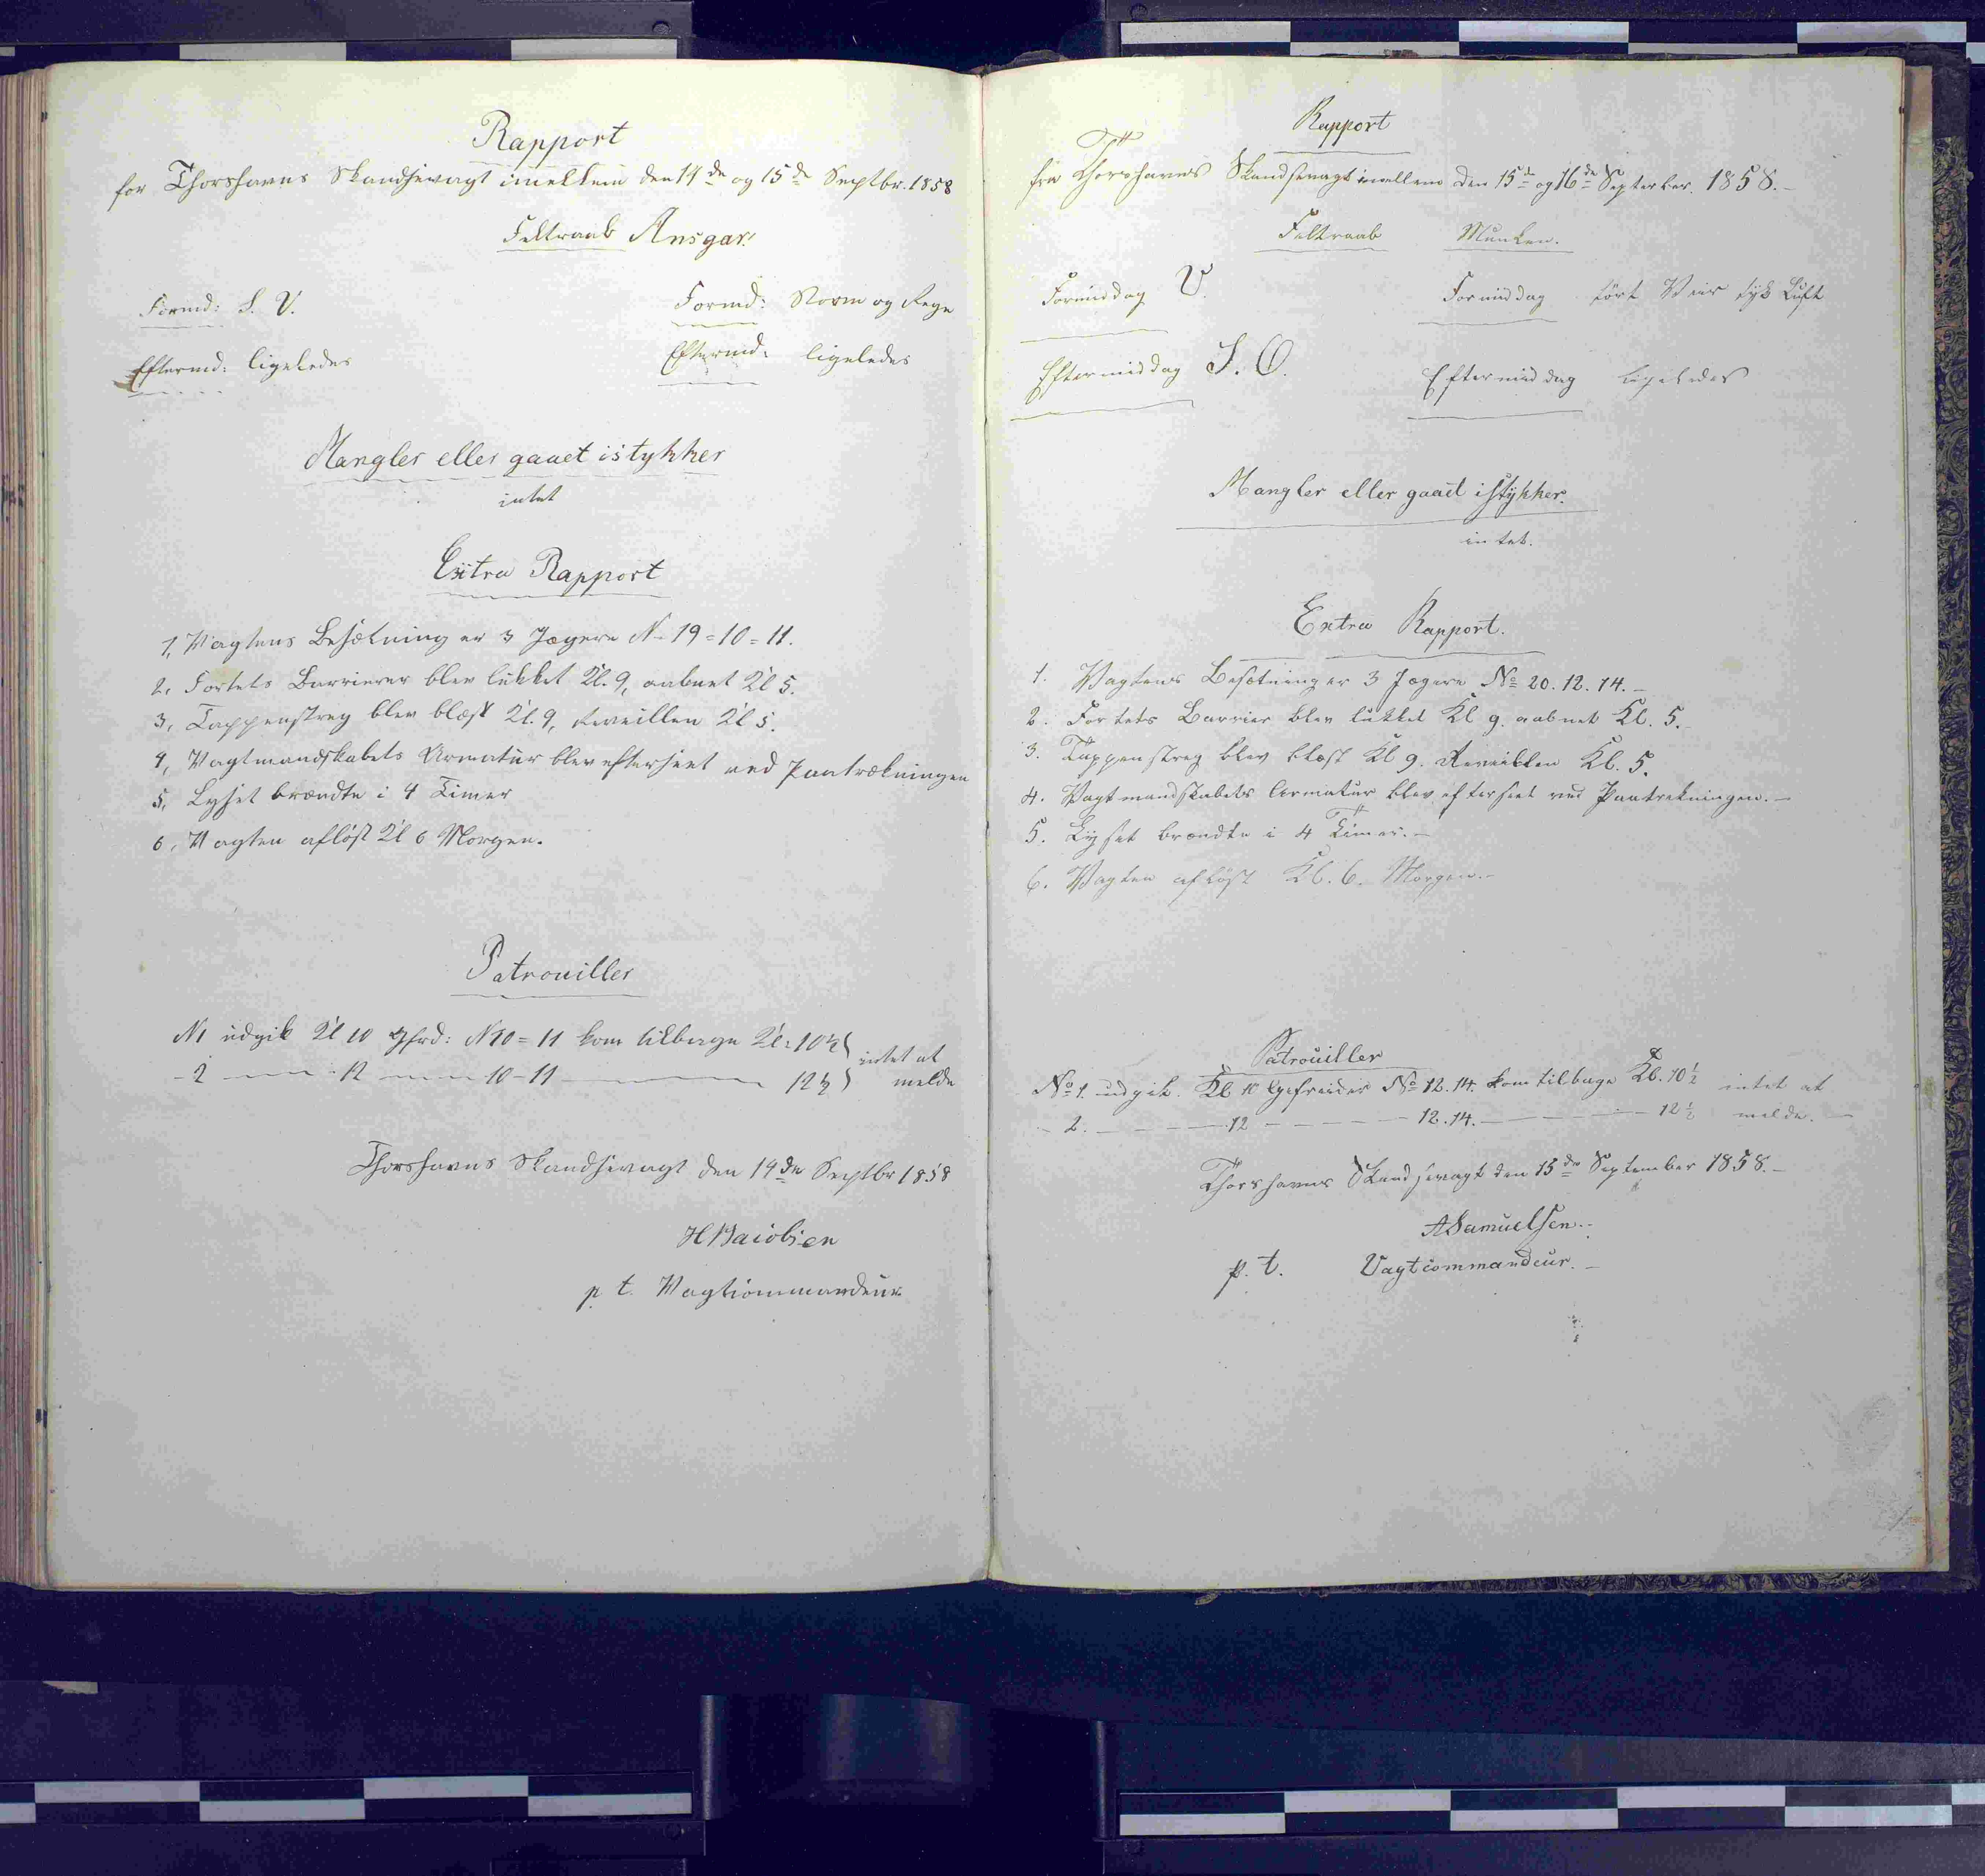 Rapport
for Thorshavns Skandsevagt imellem den 14de og 15de Septbr. 1858
Feltraab Ansgar.
Formd: S. V.
Formd: Storm og Regn
Eftermd: ligeledes
Eftermd: ligeledes
Mangler eller gaaet istykker
intet
Extra Rapport
1, Vagtens Besætning er 3 Jægere N. 19=10=11.
2, Fortets Barrierer blev lukket Kl. 9, aabnet Kl 5.
3, Tappenstreg blev blæst Kl. 9, Reveillen Kl 5.
4, Vagtmandskabets Armatur blev efterseet ved Paatrækningen
5, Lyset brændte i 4 Timer
6, Vagten afløst Kl 6 Morgen.
Patrouiller
N1 udgik Kl 10 Gfrd: N10=11 kom tilbage Kl: 10½ } intet at
- 2 — 12 — 10-11 — 12½ } melde
Thorshavns Skandsevagt den 14de Septbr 1858
p. t. Vagtcommandeur
Rapport
fra Thorshavns Skandsevagt imellem den 15de og 16de September. 1858.-
Feltraab Munken.
Formiddag V.
Formiddag tört Veir tyk Luft
Eftermiddag S. O.
Eftermiddag ligeledes
Mangler eller gaaet istykker.
intet.
Extra Rapport.
1. Vagtens Besætning er 3 Jægere No 20. 12. 14.-
2. Fortets Barrier blev lukket Kl 9. aabnet Kl. 5.-
3. Tappenstreg blev blæst Kl 9. Reveillen Kl. 5.
4. Vagtmandskabets Armatur blev efterseet ved Paatrækningen.-
5. Lyset brændte i 4 Timer.-
6. Vagten afløst Kl. 6. Morgen.-
Patrouiller
No 1. udgik. Kl 10 Gefreider No 12. 14. kom tilbage Kl. 10½ intet at
- 2. — 12 — 12. 14. — 12½ melde.-
Thorshavns Skandsevagt den 15de September 1858.-
ASamuelsen.-
p. t. Vagtcommandeur.-